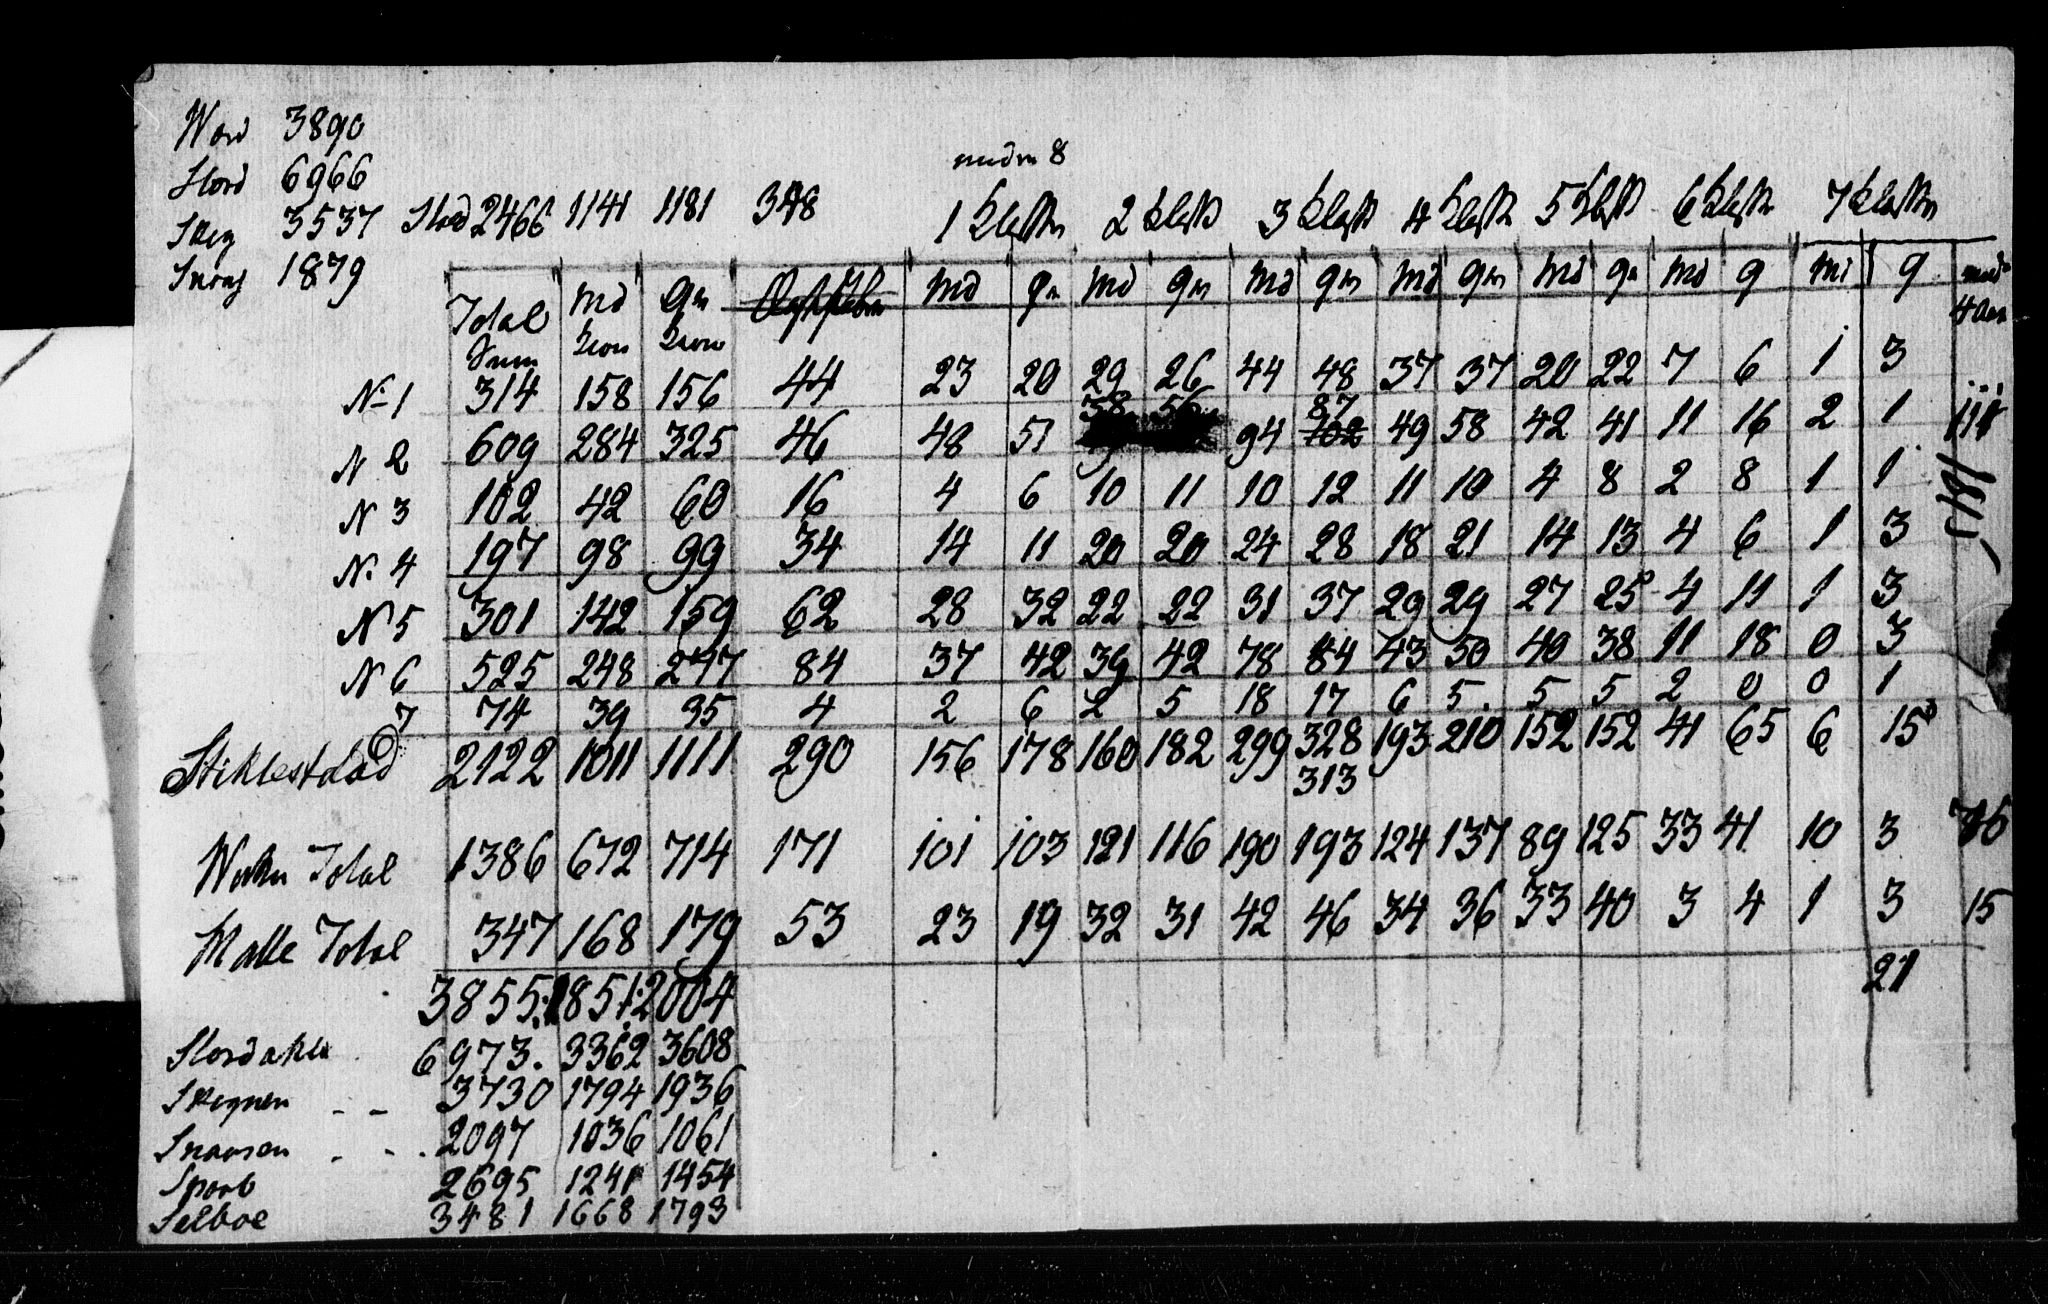 Word 3890
Stord 6966
Skey 3537 Stod 2466 1141 1181 348
Snaas 1879
8
1 Klassen 2 Klass 3 Klass 4 Klassen 5 Klass 6 Klassen 7 Klassen
Total Sum Md Kion Qn Kion Md Qn Md Qn Md Qn Md Qn Md Qn Md Q Md Q
4 Aar
No 1 314 158 156 44 23 20 29 26 44 48 37 37 20 22 7 6 1 3
38 56 87
N 2 609 284 325 46 48 51 94 102 49 58 42 41 11 16 2 1
N 3 102 42 60 16 4 6 10 11 10 12 11 10 4 8 2 8 1 1
N. 4 197 98 99 34 14 11 20 20 24 28 18 21 14 13 4 6 1 3
N 5 301 142 159 62 28 32 22 22 31 37 29 29 27 25 4 11 1 3
N 6 525 248 277 84 37 42 39 42 78 84 43 50 40 38 11 18 0 3
7 74 39 35 4 2 6 2 5 18 17 6 5 5 5 2 0 0 1
Stiklestad 2122 1011 1111 290 156 178 160 182 299 328 193 210 152 152 41 65 6 15
313
Total 1386 672 714 171 101 103 121 116 190 193 124 137 89 125 33 41 10 3 76
Malle Total 347 168 179 53 23 19 32 31 42 46 34 36 33 40 3 4 1 3 15
3855 : 1851 : 2004 21
Stordalen 6973. 3362 3608
Skeynen - - 3730 1794 1936
Snaasen - - 2097 1036 1061
Sparb 2695 1241 1454
Selboe 3481 1668 1793